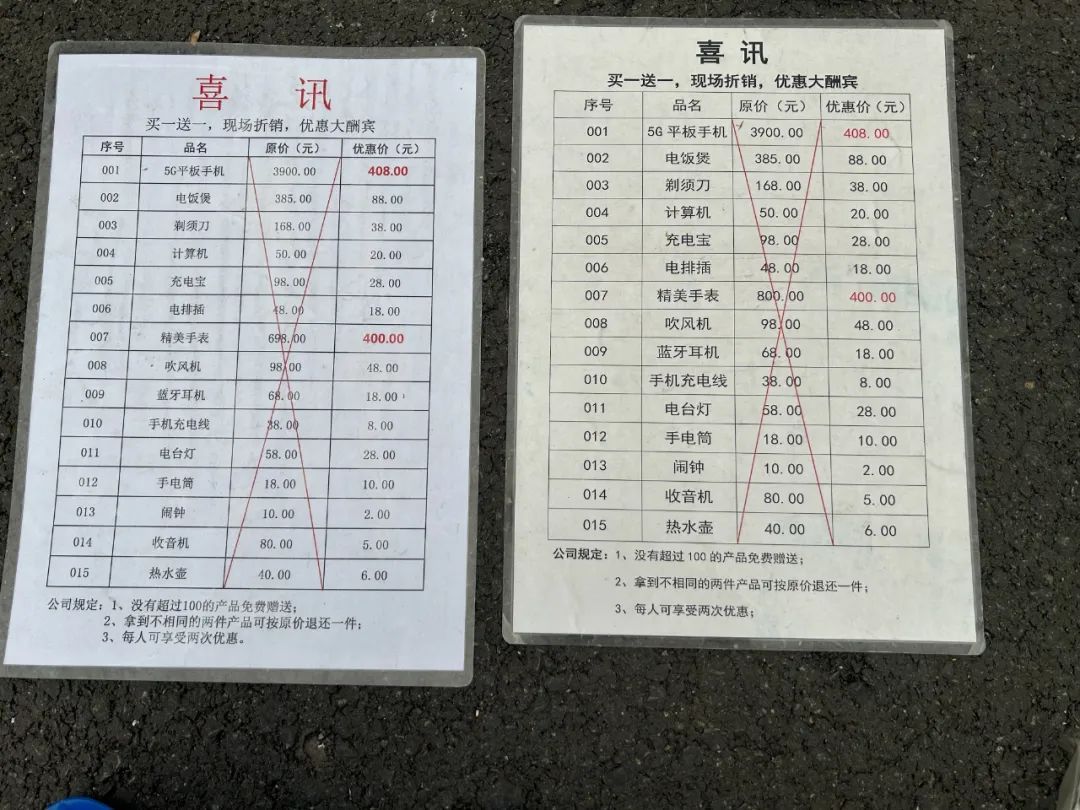 喜 讯
买一送一，现场折销，优惠大酬宾
序号 品名 原价（元） 优惠价（元）
001 5G平板手机 3900.00 408.00
002 电饭煲 385.00 88.00
003 剃须刀 168.00 38.00
004 计算机 50.00 20.00
005 充电宝 98.00 28.00
006 电排插 48.00 18.00
007 精美手表 698.00 400.00
008 吹风机 98.00 48.00
009 蓝牙耳机 68.00 18.00
010 手机充电线 38.00 8.00
011 电台灯 58.00 28.00
012 手电筒 18.00 10.00
013 闹钟 10.00 2.00
014 收音机 80.00 5.00
015 热水壶 40.00 6.00
公司规定：1、没有超过100的产品免费赠送；
2、拿到不相同的两件产品可按原价退还一件；
3、每人可享受两次优惠。
喜 讯
买一送一，现场折销，优惠大酬宾
序号 品名 原价（元） 优惠价（元）
001 5G平板手机 3900.00 408.00
002 电饭煲 385.00 88.00
003 剃须刀 168.00 38.00
004 计算机 50.00 20.00
005 充电宝 98.00 28.00
006 电排插 48.00 18.00
007 精美手表 800.00 400.00
008 吹风机 98.00 48.00
009 蓝牙耳机 68.00 18.00
010 手机充电线 38.00 8.00
011 电台灯 58.00 28.00
012 手电筒 18.00 10.00
013 闹钟 10.00 2.00
014 收音机 80.00 5.00
015 热水壶 40.00 6.00
公司规定：1、没有超过100的产品免费赠送；
2、拿到不相同的两件产品可按原价退还一件；
3、每人可享受两次优惠；